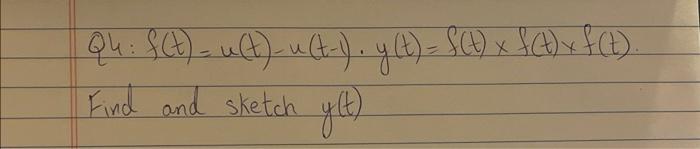 Q4: f(t) = u(t) - u(t-1). y(t) = f(t) × f(t) × f(t).
Find and sketch y(t)